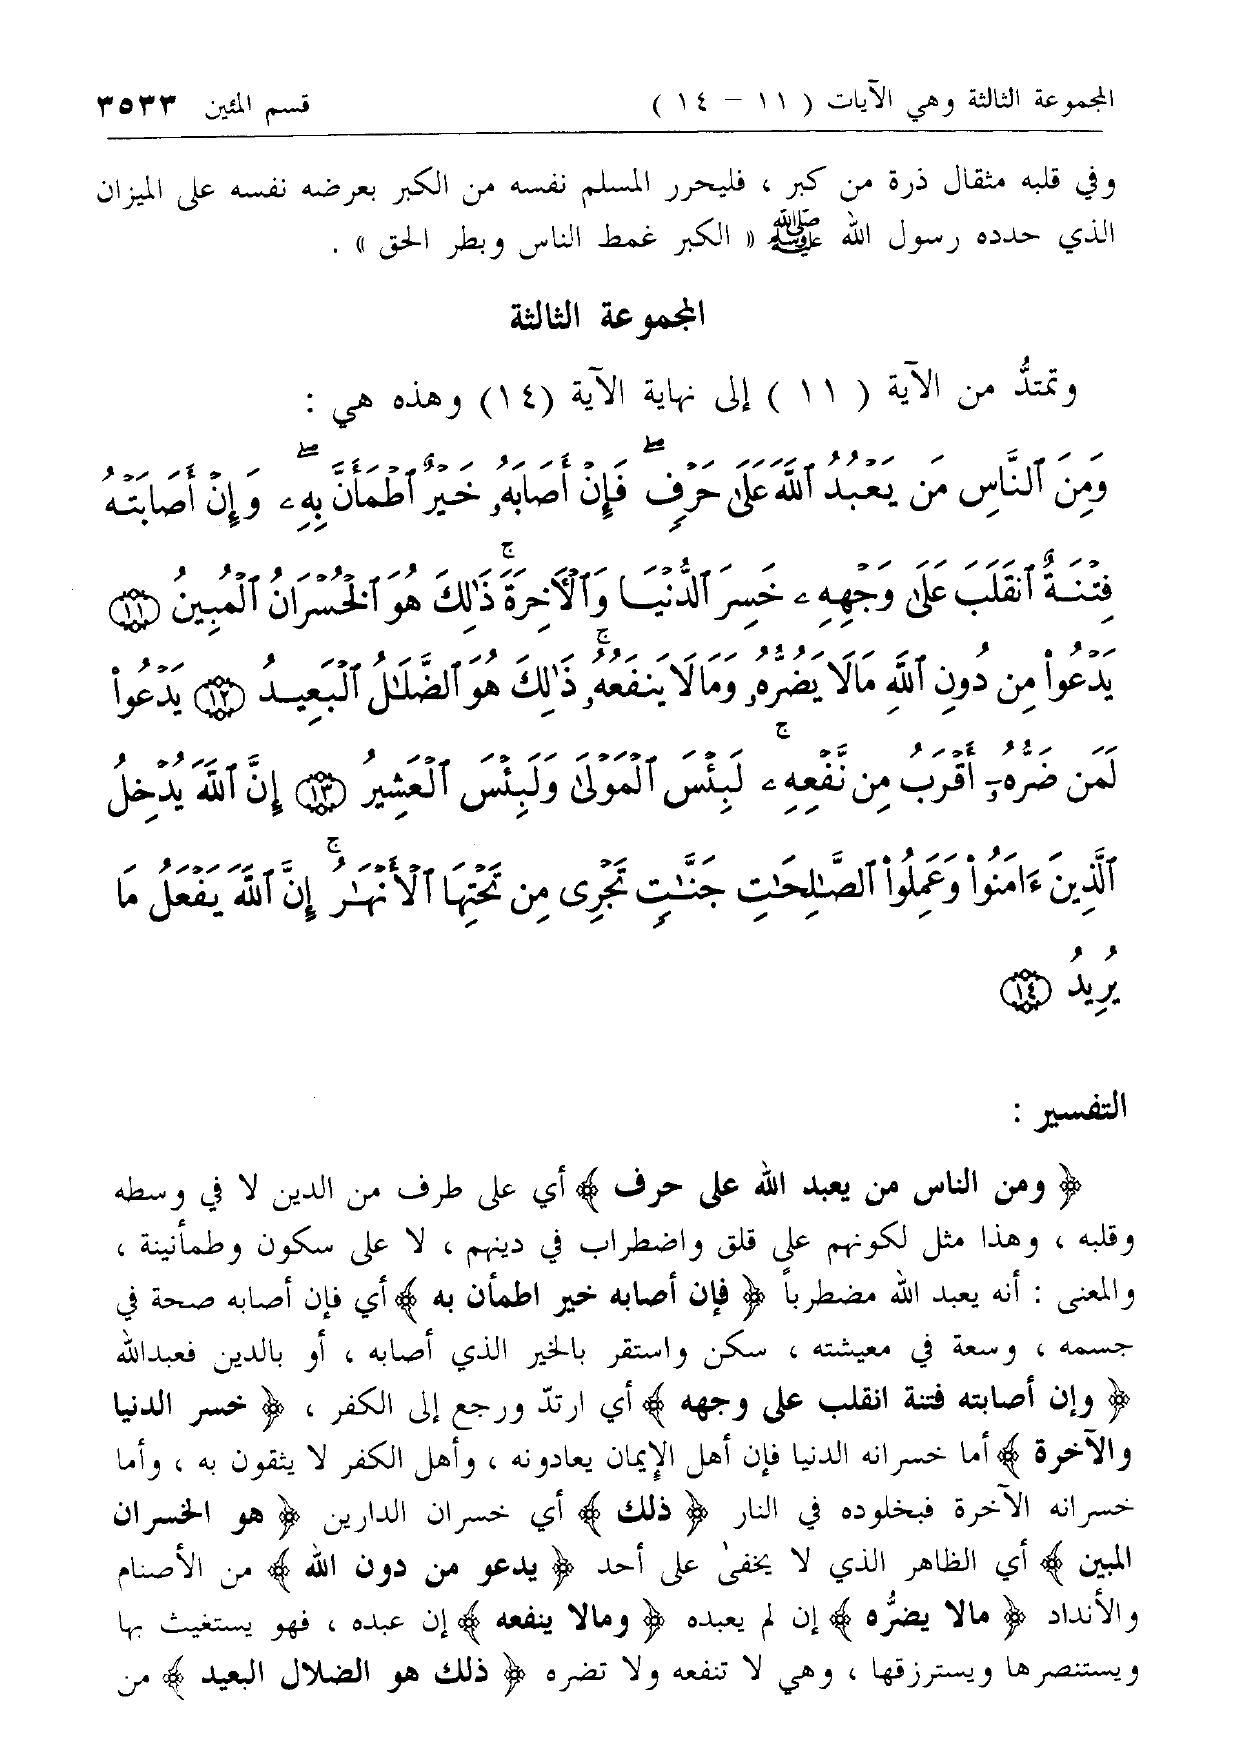 المجموعة الثالثة وهي الآيات ( ١١ – ١٤ ) قسم المئين ٣٥٣٣
وفي قلبه مثقال ذرة من كبر ، فليحرر المسلم نفسه من الكبر بعرضه نفسه على الميزان
الذي حدده رسول الله ﷺ « الكبر غمط الناس وبطر الحق » .
المجموعة الثالثة
وتمتدُّ من الآية ( ١١ ) إلى نهاية الآية (١٤) وهذه هي :
وَمِنَ ٱلنَّاسِ مَن يَعْبُدُ ٱللَّهَ عَلَىٰ حَرْفٍ ۖ فَإِنْ أَصَابَهُۥ خَيْرٌ ٱطْمَأَنَّ بِهِۦ ۖ وَإِنْ أَصَابَتْهُ
فِتْنَةٌ ٱنقَلَبَ عَلَىٰ وَجْهِهِۦ خَسِرَ ٱلدُّنْيَا وَٱلْأَخِرَةَ ۚ ذَٰلِكَ هُوَ ٱلْخُسْرَانُ ٱلْمُبِينُ ۝١١
يَدْعُوا۟ مِن دُونِ ٱللَّهِ مَالَا يَضُرُّهُۥ وَمَالَا يَنفَعُهُۥ ۚ ذَٰلِكَ هُوَ ٱلضَّلَٰلُ ٱلْبَعِيدُ ۝١٢ يَدْعُوا۟
لَمَن ضَرُّهُۥٓ أَقْرَبُ مِن نَّفْعِهِۦ ۚ لَبِئْسَ ٱلْمَوْلَىٰ وَلَبِئْسَ ٱلْعَشِيرُ ۝١٣ إِنَّ ٱللَّهَ يُدْخِلُ
ٱلَّذِينَ ءَامَنُوا۟ وَعَمِلُوا۟ ٱلصَّٰلِحَٰتِ جَنَّٰتٍ تَجْرِى مِن تَحْتِهَا ٱلْأَنْهَٰرُ ۚ إِنَّ ٱللَّهَ يَفْعَلُ مَا
يُرِيدُ ۝١٤
التفسير :
﴿ ومن الناس من يعبد الله على حرف ﴾ أي على طرف من الدين لا في وسطه
وقلبه ، وهذا مثل لكونهم على قلق واضطراب في دينهم ، لا على سكون وطمأنينة ،
والمعنى : أنه يعبد الله مضطرباً ﴿ فإن أصابه خير اطمأن به ﴾ أي فإن أصابه صحة في
جسمه ، وسعة في معيشته ، سكن واستقر بالخير الذي أصابه ، أو بالدين فعبدالله
﴿ وإن أصابته فتنة انقلب على وجهه ﴾ أي ارتدّ ورجع إلى الكفر ، ﴿ خسر الدنيا
والآخرة ﴾ أما خسرانه الدنيا فإن أهل الإيمان يعادونه ، وأهل الكفر لا يثقون به ، وأما
خسرانه الآخرة فبخلوده في النار ﴿ ذلك ﴾ أي خسران الدارين ﴿ هو الخسران
المبين ﴾ أي الظاهر الذي لا يخفىٰ على أحد ﴿ يدعو من دون الله ﴾ من الأصنام
والأنداد ﴿ مالا يضرُّه ﴾ إن لم يعبده ﴿ ومالا ينفعه ﴾ إن عبده ، فهو يستغيث بها
ويستنصرها ويسترزقها ، وهي لا تنفعه ولا تضره ﴿ ذلك هو الضلال البعيد ﴾ من